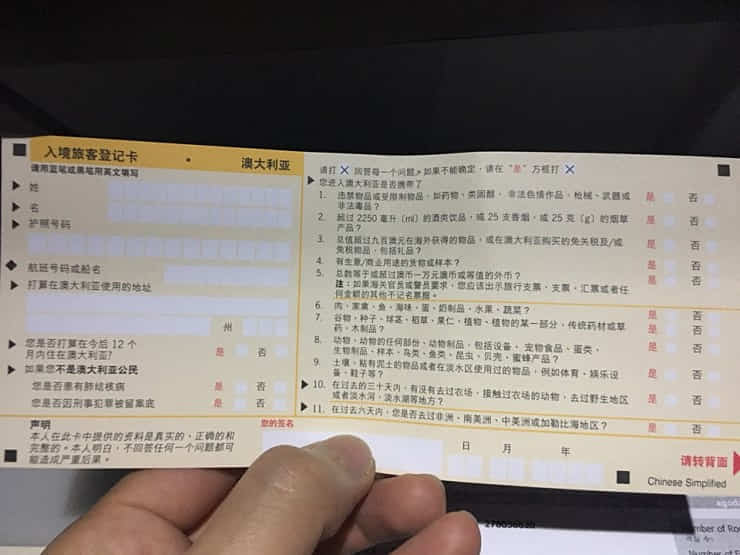 入境旅客登记卡 • 澳大利亚
请用蓝笔或黑笔用英文填写
姓
名
护照号码
航班号码或船名
打算在澳大利亚使用的地址
州
您是否打算在今后 12 个
月内住在澳大利亚? 是 否
如果您不是澳大利亚公民
您是否患有肺结核病 是 否
您是否因刑事犯罪被留案底 是 否
声明
本人在此卡中提供的资料是真实的、正确的和
完整的。本人明白,不回答任何一个问题都可
能造成严重后果。
您的签名
请打 X 回答每一个问题。如果不能确定,请在 “是” 方框打 X
您进入澳大利亚是否携带了
1. 违禁物品或受限制物品,如药物、类固醇、非法色情作品、枪械、武器或
非法毒品? 是 否
2. 超过 2250 毫升 (ml) 的酒类饮品,或 25 支香烟,或 25 克 (g) 的烟草
产品? 是 否
3. 总值超过九百澳元在海外获得的物品,或在澳大利亚购买的免关税及/或
免税物品,包括礼品? 是 否
4. 有生意/商业用途的货物或样本? 是 否
5. 总数等于或超过澳币一万元澳币或等值的外币? 是 否
注:如果海关官员或警员要求,您应该出示旅行支票、支票、汇票或者任
何金额的其他不记名票据。
6. 肉、家禽、鱼、海味、蛋、奶制品、水果、蔬菜? 是 否
7. 谷物、种子、球茎、稻草、果仁、植物、植物的某一部分,传统药材或草
药、木制品? 是 否
8. 动物、动物的任何部份、动物制品,包括设备、宠物食品、蛋类、
生物制品、样本、鸟类、鱼类、昆虫、贝壳、蜜蜂产品? 是 否
9. 土壤、粘有泥土的物品或者在淡水区使用过的物品,例如体育、娱乐设
备、鞋子等? 是 否
10. 在过去的三十天内,有没有去过农场、接触过农场的动物、去过野生地区
或者淡水河、淡水湖等地方? 是 否
11. 在过去六天内,您是否去过非洲、南美洲、中美洲或加勒比海地区? 是 否
日 月 年
请转背面
Chinese Simplified
agoda
Number of Roo
Number of